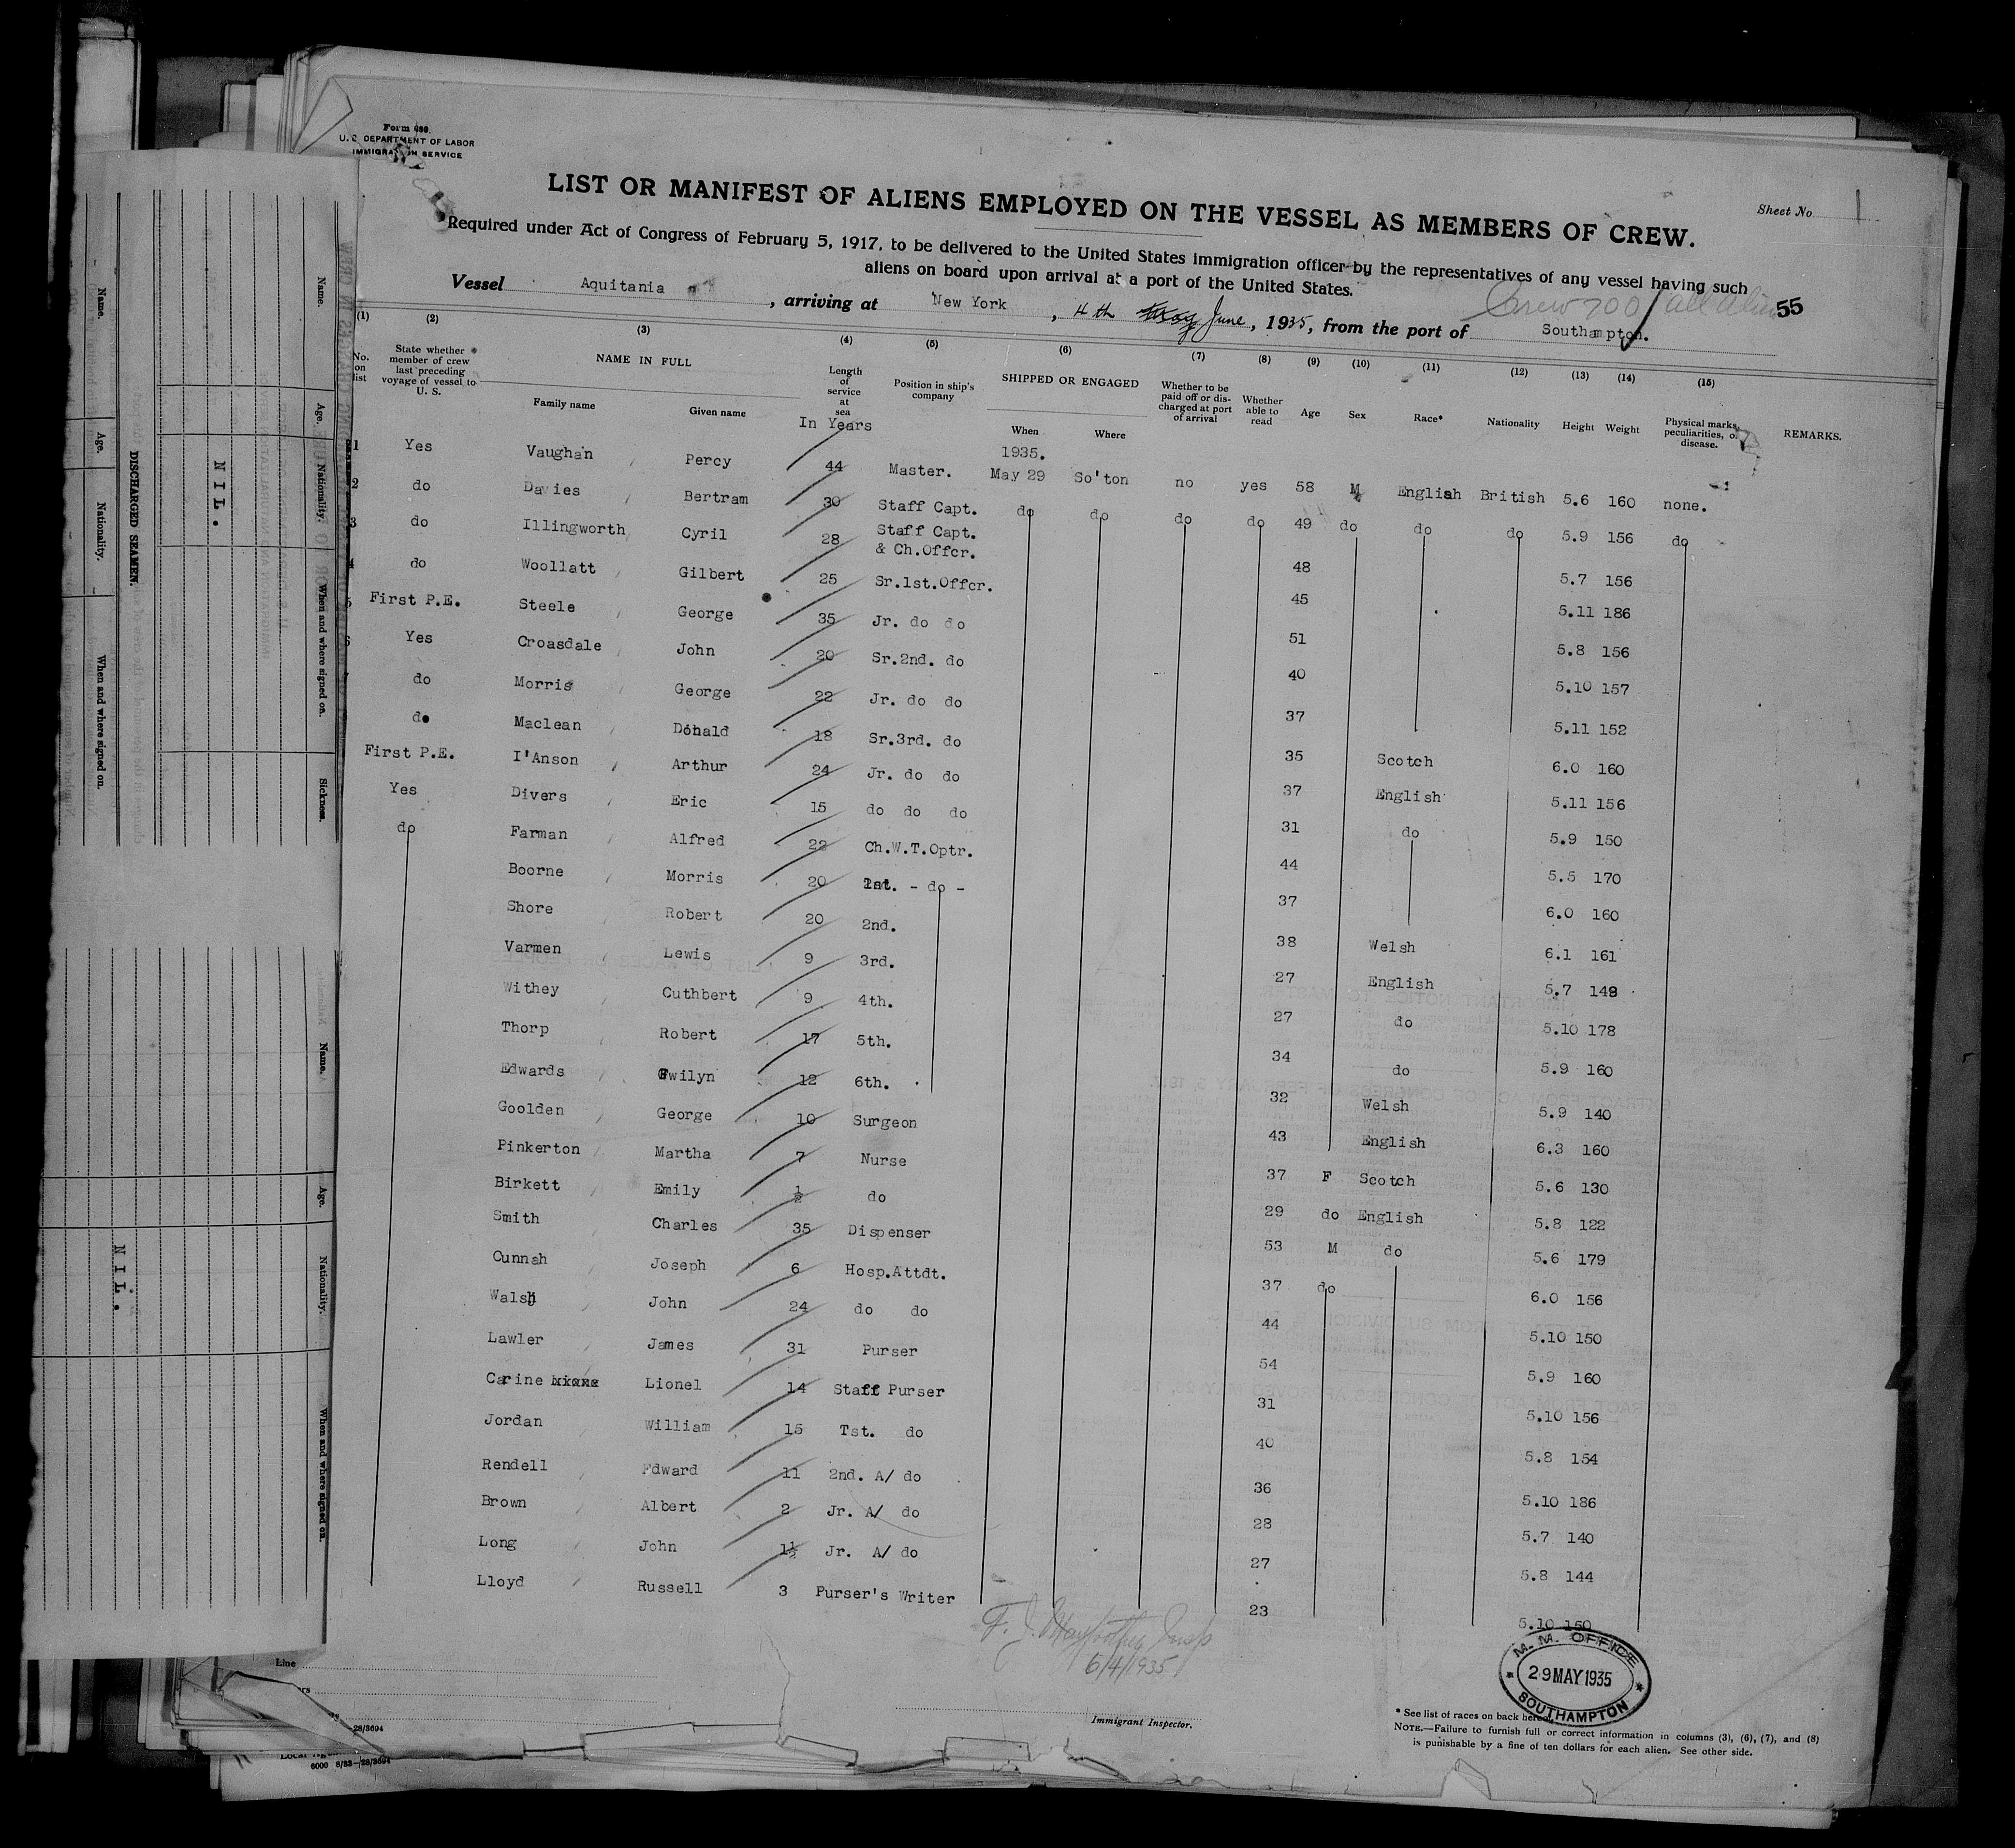 Form 680.
U. S. DEPARTMENT OF LABOR
IMMIGRATION SERVICE
Sheet No. 1
LIST OR MANIFEST OF ALIENS EMPLOYED ON THE VESSEL AS MEMBERS OF CREW.
Required under Act of Congress of February 5, 1917, to be delivered to the United States immigration officer by the representatives of any vessel having such
aliens on board upon arrival at a port of the United States.
Crew 700 / all alien 55
Vessel Aquitania, arriving at New York, 4th June, 1935, from the port of Southampton.
(1) (2) (3) (4) (5) (6) (7) (8) (9) (10) (11) (12) (13) (14) (15)
No. on list
State whether member of crew last preceding voyage of vessel to U. S.
NAME IN FULL
Family name Given name
Length of service at sea
In Years
Position in ship's company
SHIPPED OR ENGAGED
When Where
Whether to be paid off or discharged at port of arrival
Whether able to read
Age
Sex
Race*
Nationality
Height
Weight
Physical marks, peculiarities, or disease.
REMARKS.
1935.
1 Yes Vaughan Percy 44 Master. May 29 So'ton no yes 58 M English British 5.6 160 none.
2 do Davies Bertram 30 Staff Capt. do do do do 49 do do do 5.9 156 do
3 do Illingworth Cyril 28 Staff Capt. & Ch.Offcr. 48 5.7 156
4 do Woollatt Gilbert 25 Sr.1st.Offcr. 45 5.11 186
5 First P.E. Steele George 35 Jr. do do 51 5.8 156
6 Yes Croasdale John 20 Sr.2nd. do 40 5.10 157
do Morris George 22 Jr. do do 37 5.11 152
do Maclean Donald 18 Sr.3rd. do 35 Scotch 6.0 160
First P.E. I'Anson Arthur 24 Jr. do do 37 English 5.11 156
Yes Divers Eric 15 do do do 31 do 5.9 150
do Farman Alfred 22 Ch.W.T.Optr. 44 5.5 170
Boorne Morris 20 1st. - do - 37 6.0 160
Shore Robert 20 2nd. 38 Welsh 6.1 161
Varmen Lewis 9 3rd. 27 English 5.7 149
Withey Cuthbert 9 4th. 27 do 5.10 178
Thorp Robert 17 5th. 34 do 5.9 160
Edwards Gwilyn 12 6th. 32 Welsh 5.9 140
Goolden George 10 Surgeon 43 English 6.3 160
Pinkerton Martha 7 Nurse 37 F Scotch 5.6 130
Birkett Emily ½ do 29 do English 5.8 122
Smith Charles 35 Dispenser 53 M do 5.6 179
Cunnah Joseph 6 Hosp.Attdt. 37 do 6.0 156
Walsh John 24 do do 44 5.10 150
Lawler James 31 Purser 54 5.9 160
Carine Lionel 14 Staff Purser 31 5.10 156
Jordan William 15 Tst. do 40 5.8 154
Rendell Edward 11 2nd. A/ do 36 5.10 186
Brown Albert 2 Jr. A/ do 28 5.7 140
Long John 1½ Jr. A/ do 27 5.8 144
Lloyd Russell 3 Purser's Writer 23 5.10 150
6/4/1935
Immigrant Inspector.
M. M. OFFICE
29 MAY 1935
SOUTHAMPTON
* See list of races on back hereof.
NOTE.—Failure to furnish full or correct information in columns (3), (6), (7), and (8)
is punishable by a fine of ten dollars for each alien. See other side.
Line
28/3694
6000 8/33—28/3694
DISCHARGED SEAMEN.
Name. Age. Nationality. When and where signed on.
Name. Age. Nationality. When and where signed on. Sickness.
NIL.
Name. Age. Nationality. When and where signed on.
NIL.